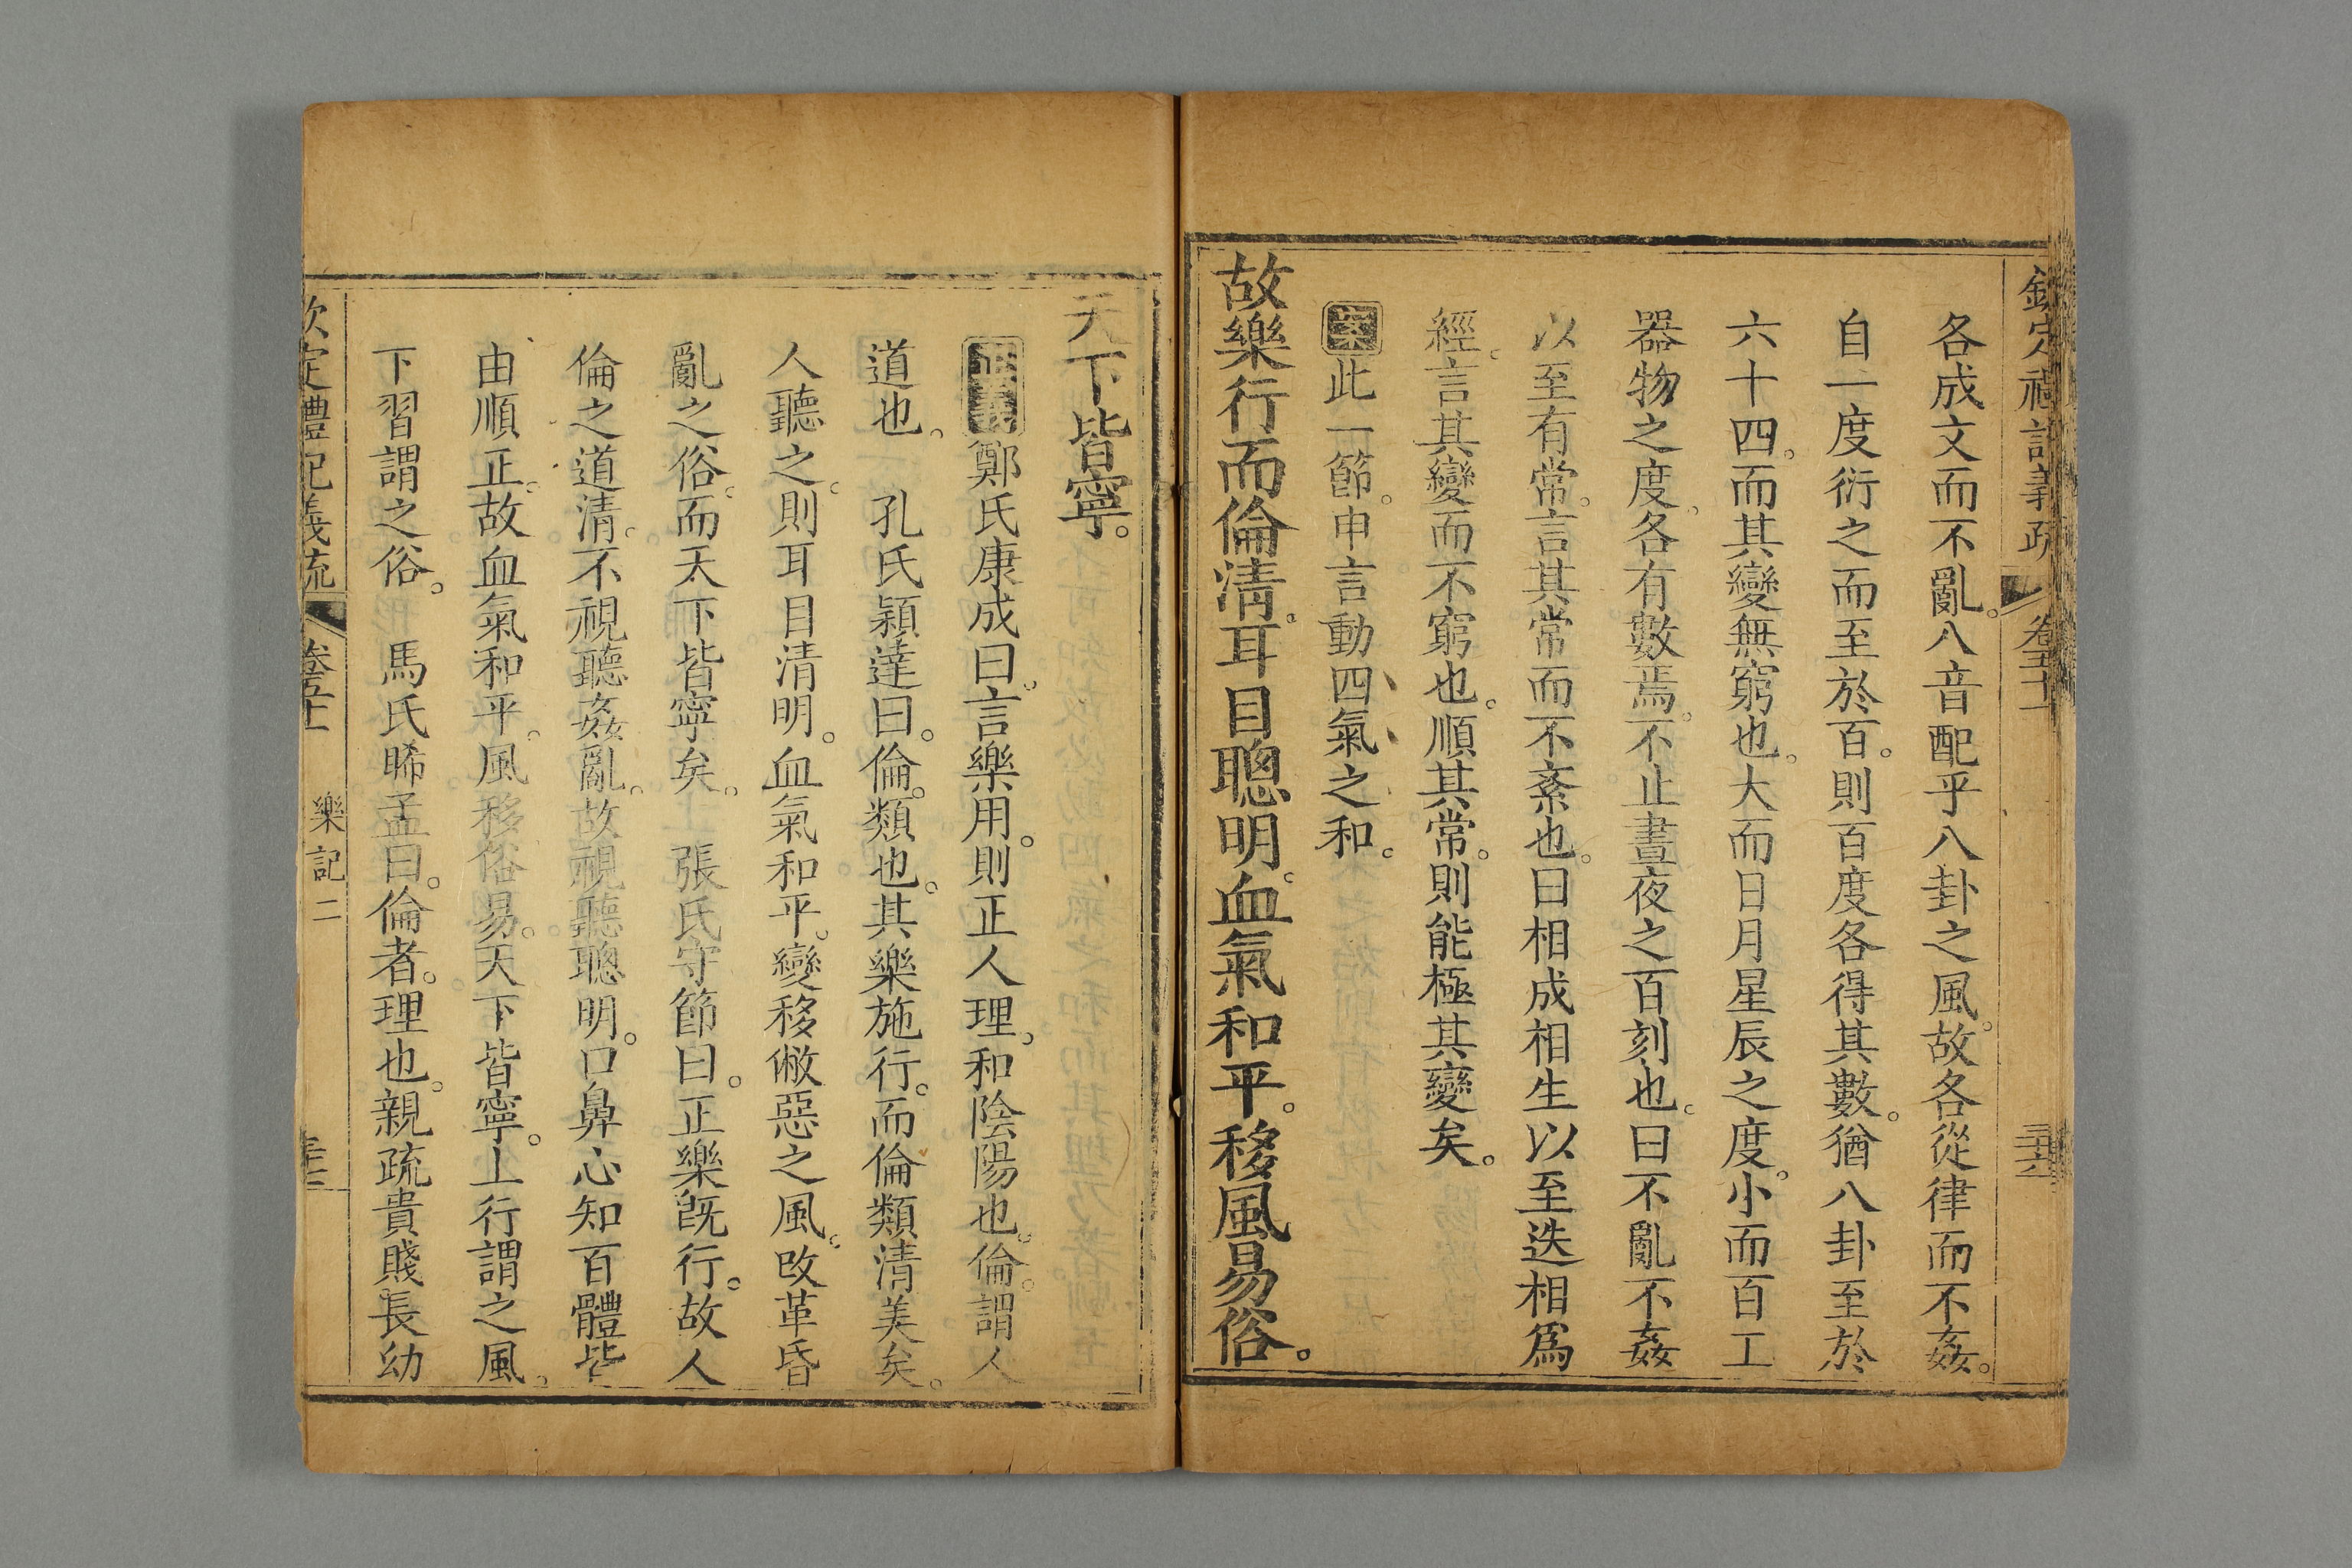 欽定禮記義疏 卷五十一 三十六
各成文而不亂。八音配乎八卦之風。故各從律而不姦。
自一度衍之而至於百。則百度各得其數。猶八卦至於
六十四。而其變無窮也。大而日月星辰之度。小而百工
器物之度。各有數焉。不止晝夜之百刻也。曰不亂不姦
以至有常。言其常而不紊也。曰相成相生以至迭相爲
經。言其變而不窮也。順其常。則能極其變矣。
案此一節。申言動四氣之和。
故樂行而倫淸。耳目聰明。血氣和平。移風易俗。
天下皆寧。
正義鄭氏康成曰。言樂用。則正人理。和陰陽也。倫。謂人
道也。 孔氏穎達曰。倫。類也。其樂施行。而倫類清美矣。
人聽之。則耳目清明。血氣和平。變移儆惡之風。改革昏
亂之俗。而天下皆寧矣。 張氏守節曰。正樂既行。故人
倫之道清。不視聽姦亂。故視聽聰明。口鼻心知百體皆
由順正。故血氣和平。風移俗易。天下皆寧。上行謂之風。
下習謂之俗。 馬氏睎孟曰。倫者。理也。親疏貴賤。長幼
欽定禮記義疏 卷五十一 樂記二